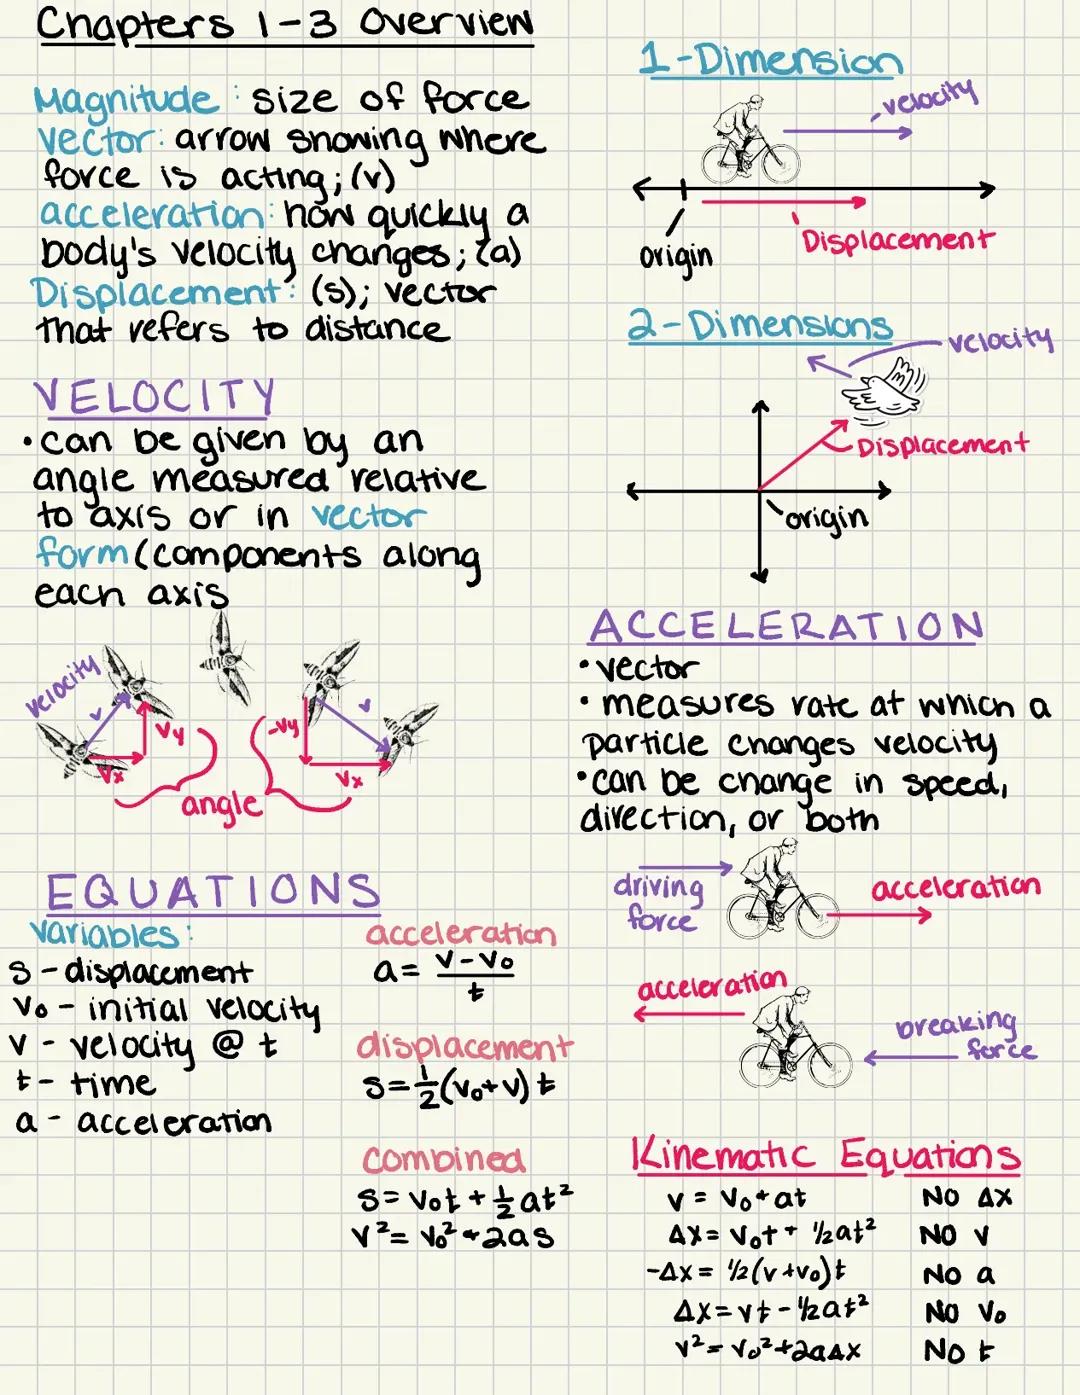 Chapters 1-3 Overview
Magnitude: size of force
vector: arrow showing where
force is acting; (v)
acceleration: how quickly a
body's velocity changes; (a)
Displacement: (s); vector
that refers to distance
VELOCITY
• can be given by an
angle measured relative
to axis or in vector
form (components along
each axis
velocity
v
Vy
Vx
-Vy
v
Vx
angle
EQUATIONS
variables:
s - displacement
v₀ - initial velocity
v - velocity @ t
t - time
a - acceleration
acceleration
a = v-v₀
t
displacement
s=½(v₀+v)t
combined
s= v₀t + ½at²
v²= v₀²+2as
1-Dimension
velocity
origin
Displacement
2-Dimensions
velocity
Displacement
origin
ACCELERATION
• vector
• measures rate at which a
particle changes velocity
• can be change in speed,
direction, or both
driving
force
acceleration
acceleration
breaking
force
Kinematic Equations
v = v₀+at No Δx
Δx= v₀t + ½at² No v
-Δx = ½(v+v₀)t No a
Δx=vt-½at² No v₀
v²=v₀²+2aΔx No t